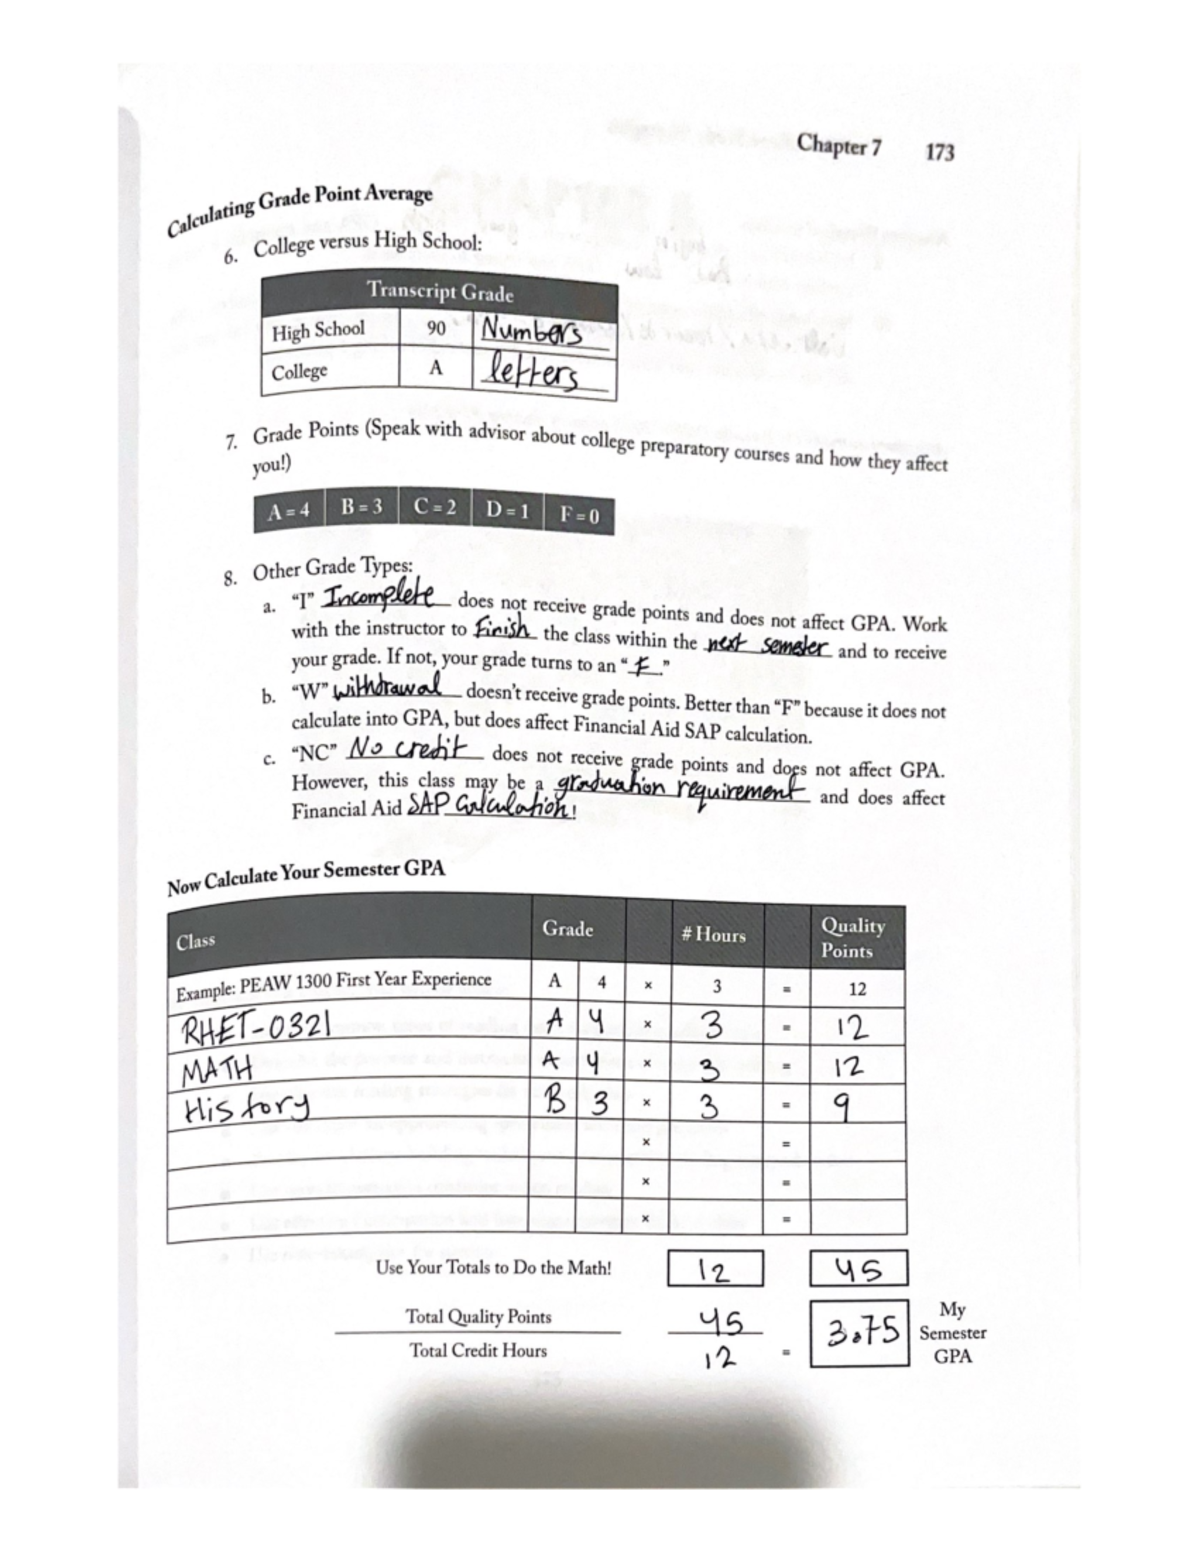 Chapter 7 173
Calculating Grade Point Average
6. College versus High School:
Transcript Grade
High School 90 Numbers
College A letters
7. Grade Points (Speak with advisor about college preparatory courses and how they affect
you!)
A = 4 B = 3 C = 2 D = 1 F = 0
8. Other Grade Types:
a. “I” Incomplete does not receive grade points and does not affect GPA. Work
with the instructor to Finish the class within the next semester and to receive
your grade. If not, your grade turns to an “F.”
b. “W” withdrawal doesn’t receive grade points. Better than “F” because it does not
calculate into GPA, but does affect Financial Aid SAP calculation.
c. “NC” No credit does not receive grade points and does not affect GPA.
However, this class may be a graduation requirement and does affect
Financial Aid SAP Calculation!
Now Calculate Your Semester GPA
Class Grade # Hours Quality
Points
Example: PEAW 1300 First Year Experience A 4 × 3 = 12
RHET-0321 A 4 × 3 = 12
MATH A 4 × 3 = 12
History B 3 × 3 = 9
× =
× =
× =
Use Your Totals to Do the Math! 12 45
Total Quality Points 45
Total Credit Hours 12 = 3.75 My
Semester
GPA